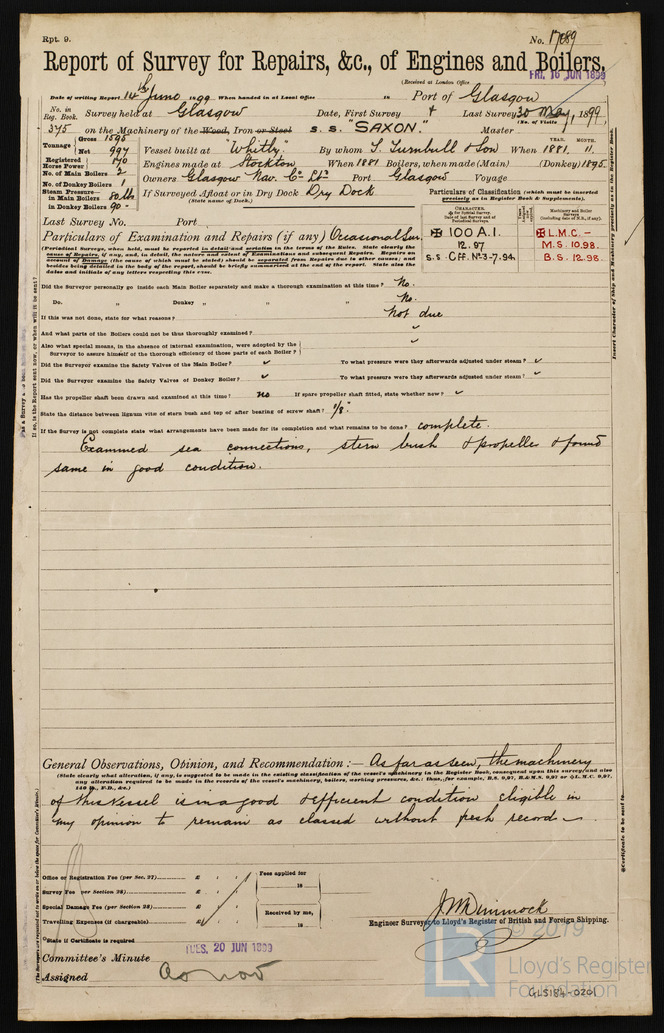 Rpt. 9.
No. 17089
Report of Survey for Repairs, &c., of Engines and Boilers.
(Received at London Office
FRI. 16 JUN 1899
Date of writing Report 14th June 1899 When handed in at Local Office 18 Port of Glasgow
No. in Reg. Book. Survey held at Glasgow Date, First Survey 4 Last Survey 30 May, 1899
(No. of Visits
375 on the Machinery of the Wood, Iron or Steel S. S. "SAXON." Master
Tonnage Gross 1595 Net 997 Vessel built at "Whitby" By whom T. Turnbull & Son When YEAR. 1881. MONTH. 11.
Registered Horse Power 170 Engines made at Stockton When 1881 Boilers, when made (Main) (Donkey) 1895
No. of Main Boilers 2 Owners Glasgow Nav. Co Ltd Port Glasgow Voyage
No. of Donkey Boilers 1
Steam Pressure— in Main Boilers 80 lbs in Donkey Boilers 90 " If Surveyed Afloat or in Dry Dock Dry Dock
(State name of Dock.)
Particulars of Classification (which must be inserted precisely as in Register Book & Supplements).
Last Survey No. Port
CHARACTER.
Machinery and Boiler Surveys
✠ 100 A.1. ✠ L.M.C. –
12. 97 M.S. 10.98.
S.S. Cff. No. 3-7.94 B.S. 12.98.
Particulars of Examination and Repairs (if any) Occasional Sur.
(Periodical Surveys, when held, must be reported in detail and seriatim in the terms of the Rules. State clearly the
cause of Repairs, if any, and, in detail, the nature and extent of Examinations and subsequent Repairs. Repairs on
account of Damage (the cause of which must be stated) should be separated from Repairs due to other causes, and
besides being detailed in the body of the report, should be briefly summarized at the end of the report. State also the
dates and initials of any letters respecting this case.
Did the Surveyor personally go inside each Main Boiler separately and make a thorough examination at this time? No.
Do. " Donkey " " " No.
If this was not done, state for what reasons? Not due
And what parts of the Boilers could not be thus thoroughly examined?
Also what special means, in the absence of internal examination, were adopted by the
Surveyor to assure himself of the thorough efficiency of those parts of each Boiler?
Did the Surveyor examine the Safety Valves of the Main Boiler? To what pressure were they afterwards adjusted under steam?
Did the Surveyor examine the Safety Valves of Donkey Boiler? To what pressure were they afterwards adjusted under steam?
Has the propeller shaft been drawn and examined at this time? no If spare propeller shaft fitted, state whether new?
State the distance between lignum vitæ of stern bush and top of after bearing of screw shaft? 1/8"
If the Survey is not complete state what arrangements have been made for its completion and what remains to be done? complete.
Examined sea connections, stern bush & propeller & found
same in good condition.
General Observations, Opinion, and Recommendation :— As far as seen, the machinery
(State clearly what alteration, if any, is suggested to be made in the existing classification of the vessel's machinery in the Register Book, consequent upon this survey, and also
any alteration required to be made in the records of the vessel's machinery, boilers, working pressures, &c.; thus, for example, B.S. 9,97, B.& M.S. 9,97 or ✠ L.M.C. 9,97,
140 lb., F.D., &c.)
of this Vessel is in a good & efficient condition eligible in
my opinion to remain as classed without fresh record.
Office or Registration Fee (per Sec. 27) £ : :
Survey Fee (per Section 28) £ : :
Special Damage Fee (per Section 28) £ : :
Travelling Expenses (if chargeable) £ : :
Fees applied for 18
Received by me, 18
J. M. Dimmock
Engineer Surveyor to Lloyd's Register of British and Foreign Shipping.
State if Certificate is required
TUES. 20 JUN 1899
Committee's Minute
Assigned As now
© 2019
LR
Lloyd's Register
Foundation
GLS184-0201
Insert Character of Ship and Machinery precisely as in the Register Book.
Certificate to be sent to